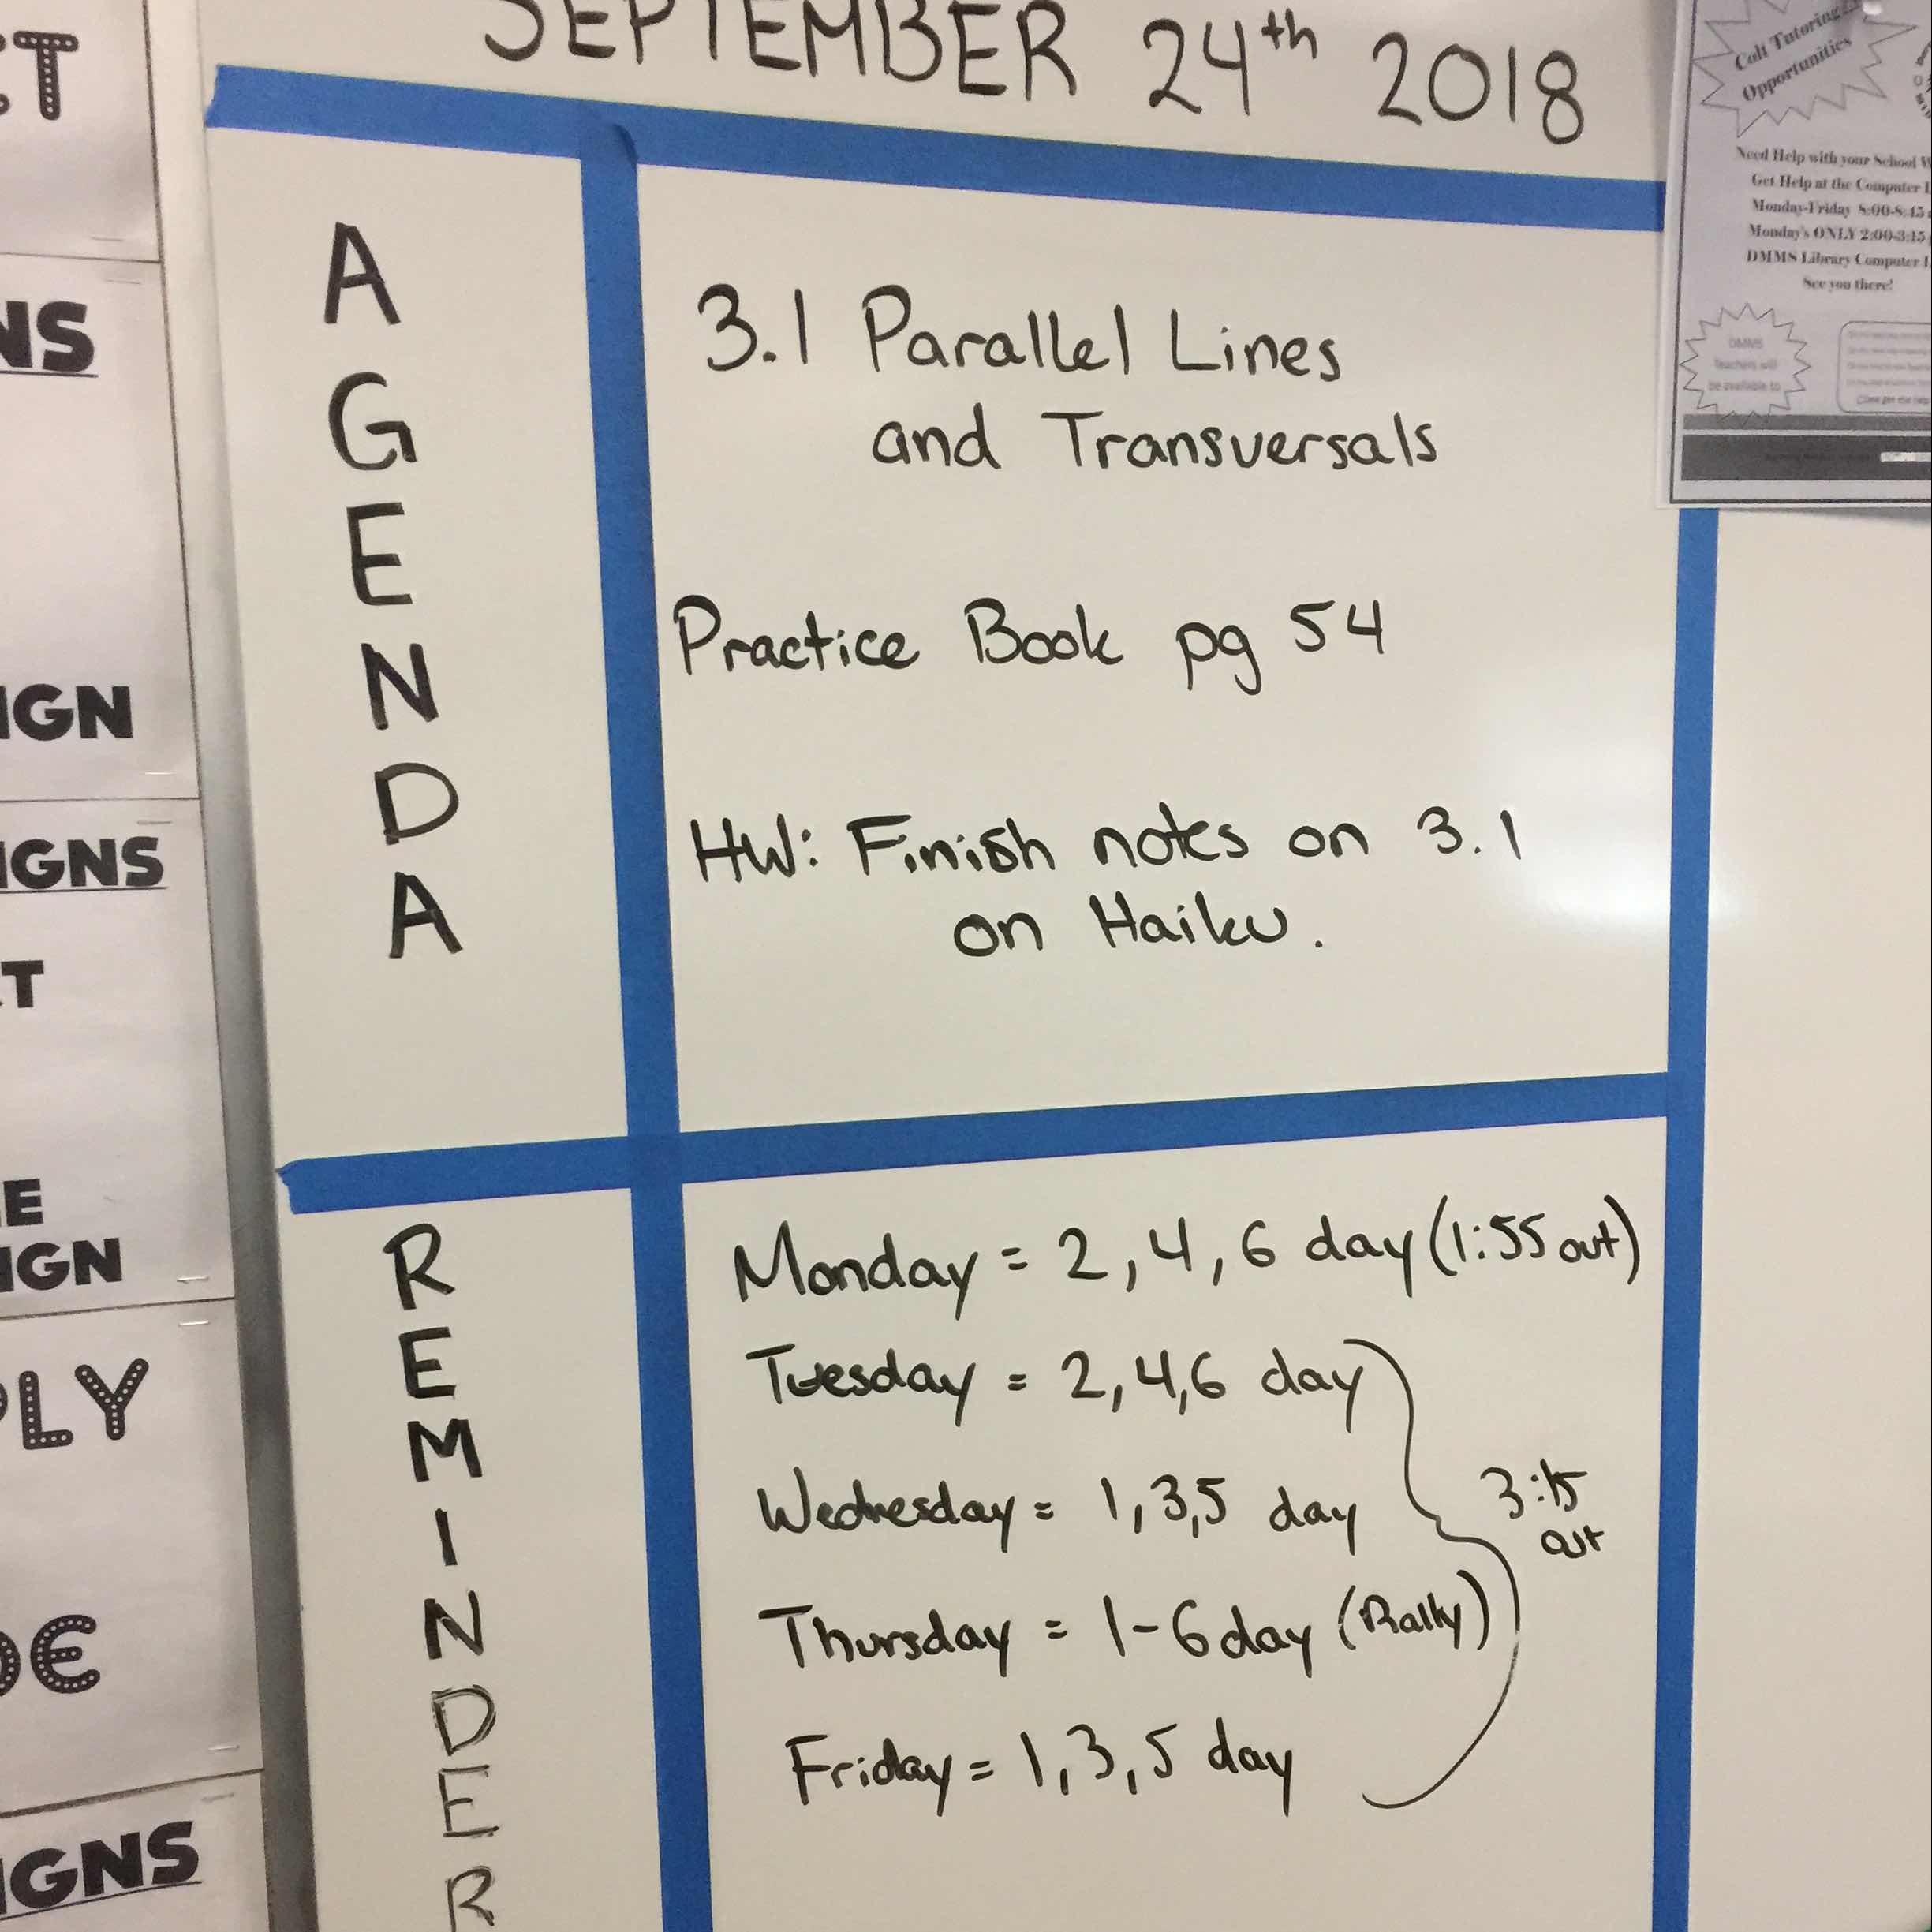 SEPTEMBER 24th 2018
AGENDA
3.1 Parallel Lines
and Transversals
Practice Book pg 54
HW: Finish notes on 3.1
on Haiku.
REMINDER
Monday = 2, 4, 6 day (1:55 out)
Tuesday = 2, 4, 6 day
Wednesday = 1, 3, 5 day
3:15
out
Thursday = 1-6 day (Rally)
Friday = 1, 3, 5 day
Colt Tutoring
Opportunities
Need Help with your School
Get Help at the Computer
Monday-Friday 8:00-8:45
Monday's ONLY 2:00-3:15
DMMS Library Computer
See you there!
DMMS
Teachers will
be available to
NS
IGN
IGNS
T
E
IGN
PLY
DE
IGNS